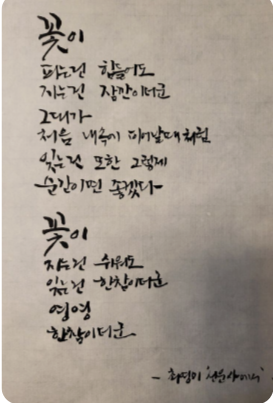 꽃이
피는건 힘들어도
지는건 잠깐이더군
그대가
처음 내속에 피어날때처럼
잊는건 또한 그렇게
순간이면 좋겠다
꽃이
지는건 쉬워도
잊는건 한참이더군
영영
한참이더군
- 최영미